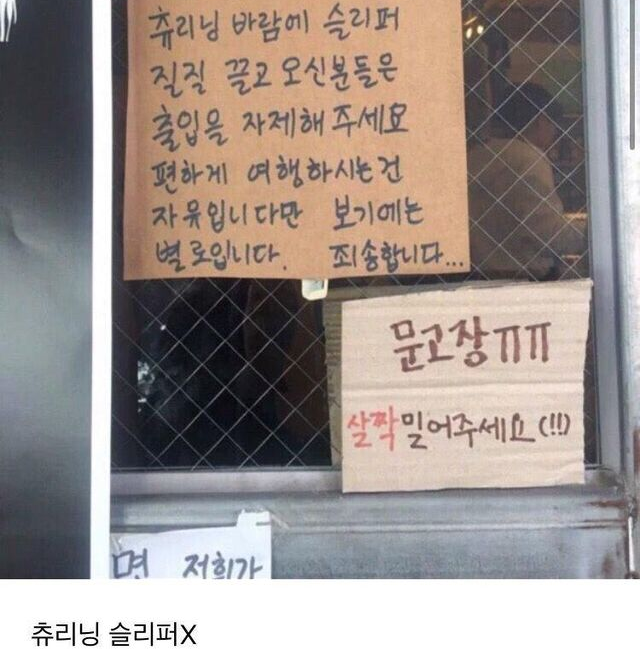 츄리닝 바람에 슬리퍼
질질 끌고 오신분들은
출입을 자제해 주세요
편하게 여행하시는건
자유입니다만 보기에는
별로입니다. 죄송합니다...
문고장ㅠㅠ
살짝밀어주세요(!!)
면 저희가
츄리닝 슬리퍼X